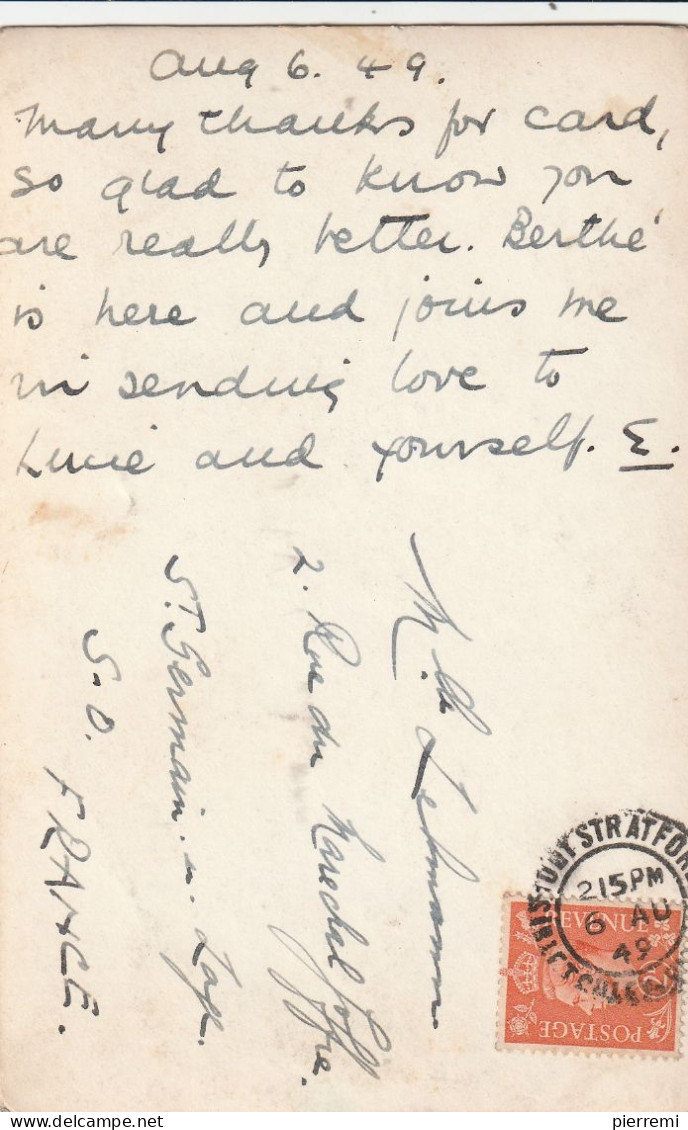 Aug 6. 49.
Many thanks for card,
so glad to know you
are really better. Berthe
is here and joins me
in sending love to
Lucie and yourself. E.
Mlle Lehmann.
2. Rue du Marechal Joffre.
St Germain. n. Laye.
S.O. FRANCE.
STRATFORD
215PM
6 AU
49
REVENUE
POSTAGE
pierremi